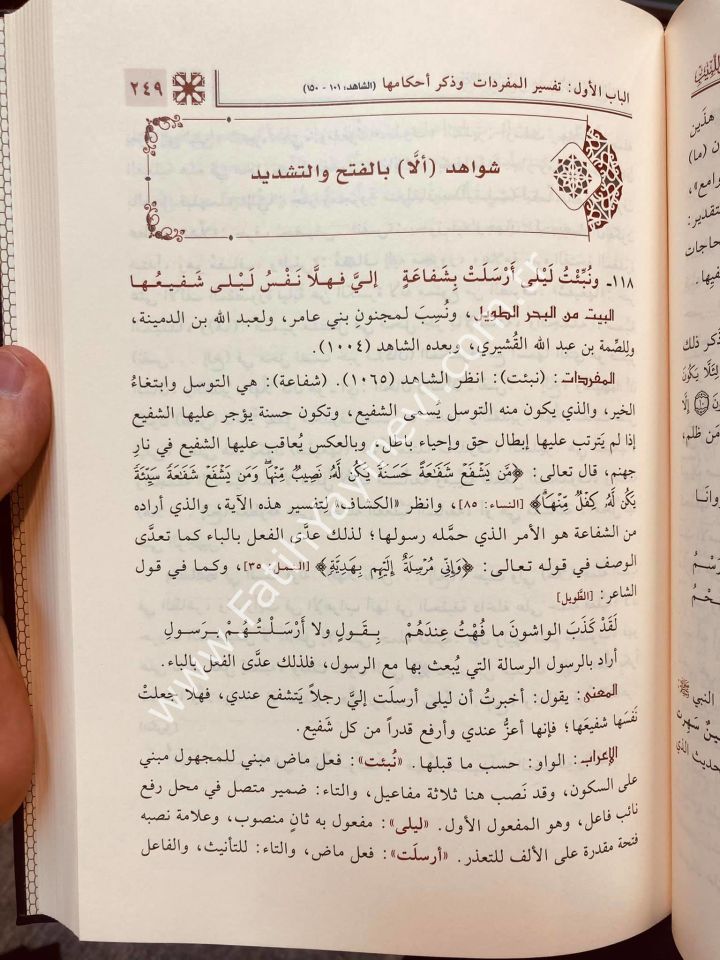 الباب الأول: تفسير المفردات وذكر أحكامها (الشاهد: ١٠١ - ١٥٠)
٢٤٩
شواهد (ألَّا) بالفتح والتشديد
١١٨ـ ونُبِّئْتُ لَيْلى أَرْسَلَتْ بِشَفاعَةٍ إليَّ فهلَّا نَفْسُ لَيْلى شَفيعُها
البيت من البحر الطويل، ونُسِبَ لمجنونِ بني عامر، ولعبد الله بن الدمينة،
وللصِّمة بن عبد الله القُشيري، وبعده الشاهد (١٠٠٤).
المفردات: (نبئت): انظر الشاهد (١٠٦٥). (شفاعة): هي التوسل وابتغاءُ
الخير، والذي يكون منه التوسل يُسمى الشفيع، وتكون حسنة يؤجر عليها الشفيع
إذا لم يَترتب عليها إبطال حق وإحياء باطل، وبالعكس يُعاقب عليها الشفيع في نارِ
جهنم، قال تعالى: ﴿مَّن يَشْفَعْ شَفَٰعَةً حَسَنَةً يَكُن لَّهُۥ نَصِيبٌ مِّنْهَا ۖ وَمَن يَشْفَعْ شَفَٰعَةً سَيِّئَةً
يَكُن لَّهُۥ كِفْلٌ مِّنْهَا ۗ﴾ [النساء: ٨٥]، وانظر «الكشاف» لتفسير هذه الآية، والذي أراده
من الشفاعة هو الأمر الذي حمَّله رسولها؛ لذلك عدَّى الفعل بالباء كما تعدَّى
الوصف في قوله تعالى: ﴿وَإِنِّى مُرْسِلَةٌ إِلَيْهِم بِهَدِيَّةٍ﴾ [النمل: ٣٥]، وكما في قول
الشاعر: [الطَّويل]
لَقَدْ كَذَبَ الواشونَ ما فُهْتُ عِندَهُمْ بِقَولٍ ولا أَرْسَلْتُهُمْ بِرَسولِ
أراد بالرسول الرسالة التي يُبعث بها مع الرسول، فلذلك عدَّى الفعل بالباء.
المعنى: يقول: أخبرتُ أن ليلى أرسلَت إليَّ رجلاً يَتشفع عندي، فهلا جعلتْ
نَفسَها شفيعَها؛ فإنها أعزُّ عندي وأرفع قدراً من كل شَفيع.
الإعراب: الواو: حسب ما قبلها. «نُبئت»: فعل ماض مبني للمجهول مبني
على السكون، وقد نَصب هنا ثلاثة مفاعيل، والتاء: ضمير متصل في محل رفع
نائب فاعل، وهو المفعول الأول. «ليلى»: مفعول به ثانٍ منصوب، وعلامة نصبه
فتحة مقدرة على الألف للتعذر. «أرسلَت»: فعل ماض، والتاء: للتأنيث، والفاعل
www.FatihYayinevi.com.tr
هذين
(ما)
التقدير:
حاجات
ذكر ذلك
مَن ظلم،
النبي ﷺ